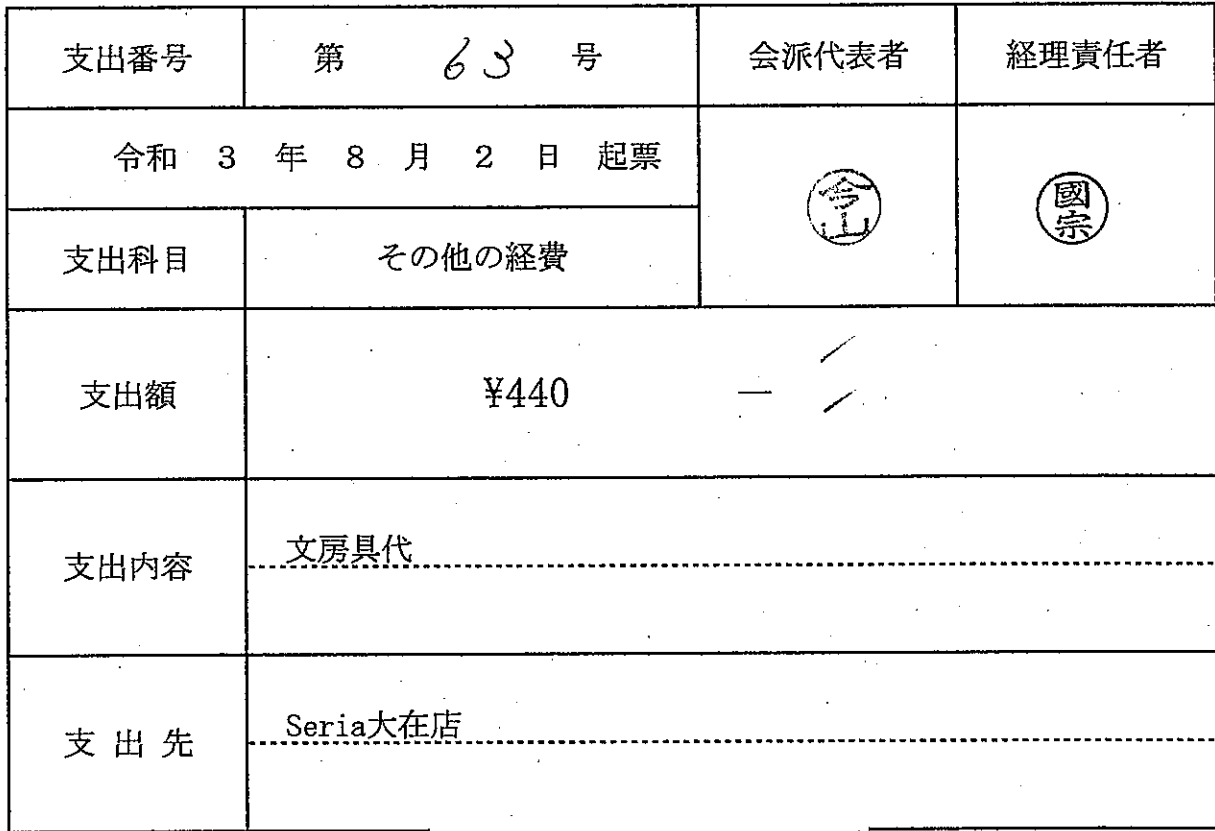 支出番号 第 63 号 会派代表者 経理責任者
令和 3 年 8 月 2 日 起票
今山 國宗
支出科目 その他の経費
支出額 ¥440 ―
支出内容 文房具代
支出先 Seria大在店